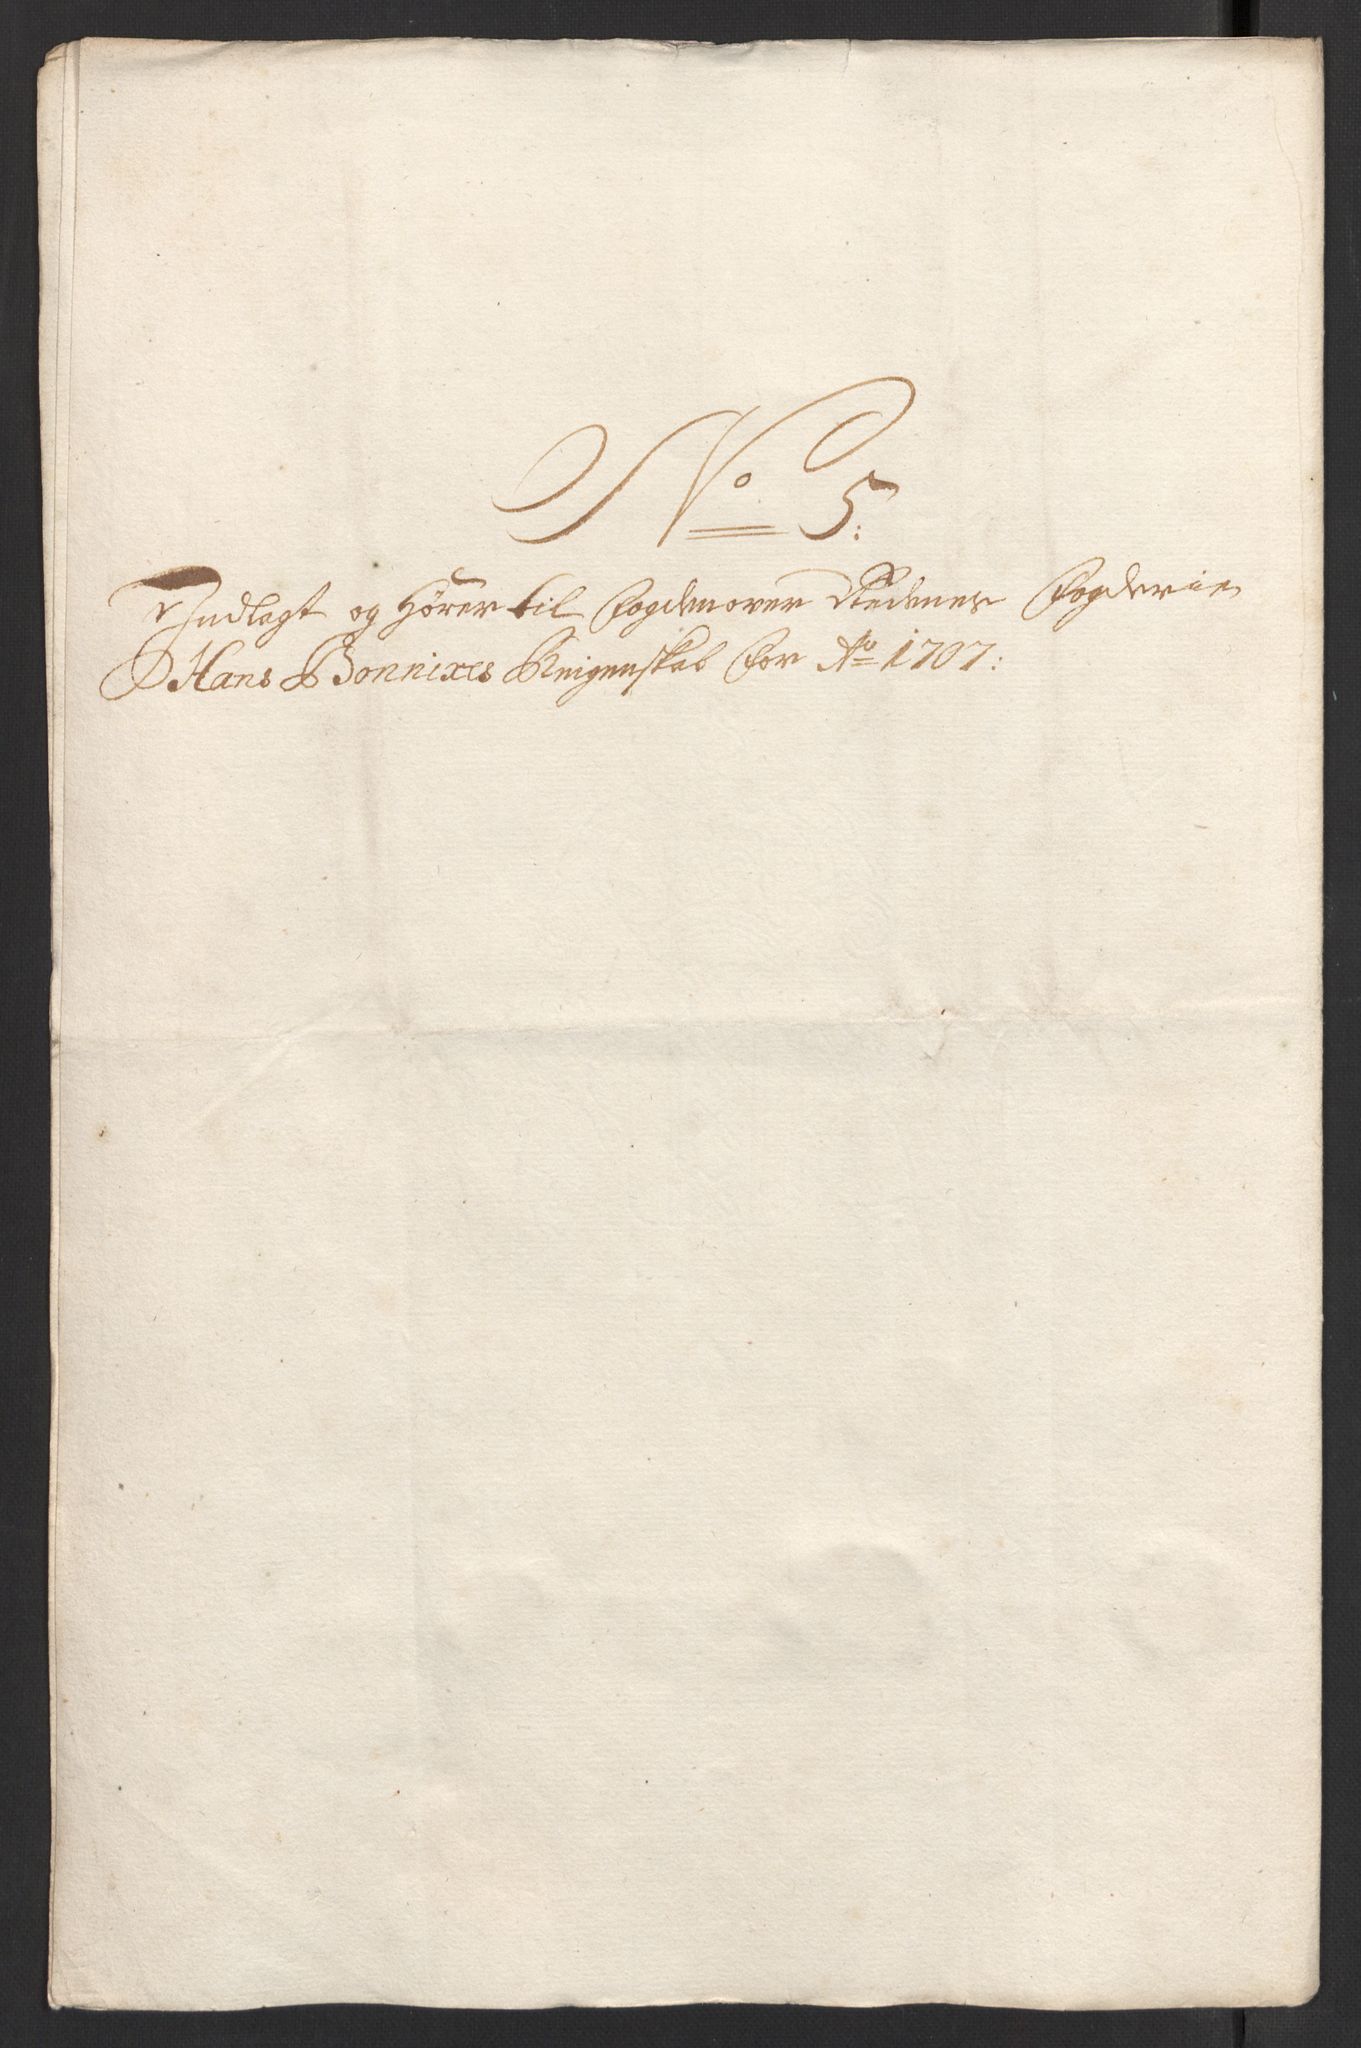 No 5:
Indlagt og hører til Fogden over Nedenes Fogderie
Hans Bonnixes Reigenskab for Ao 1707: